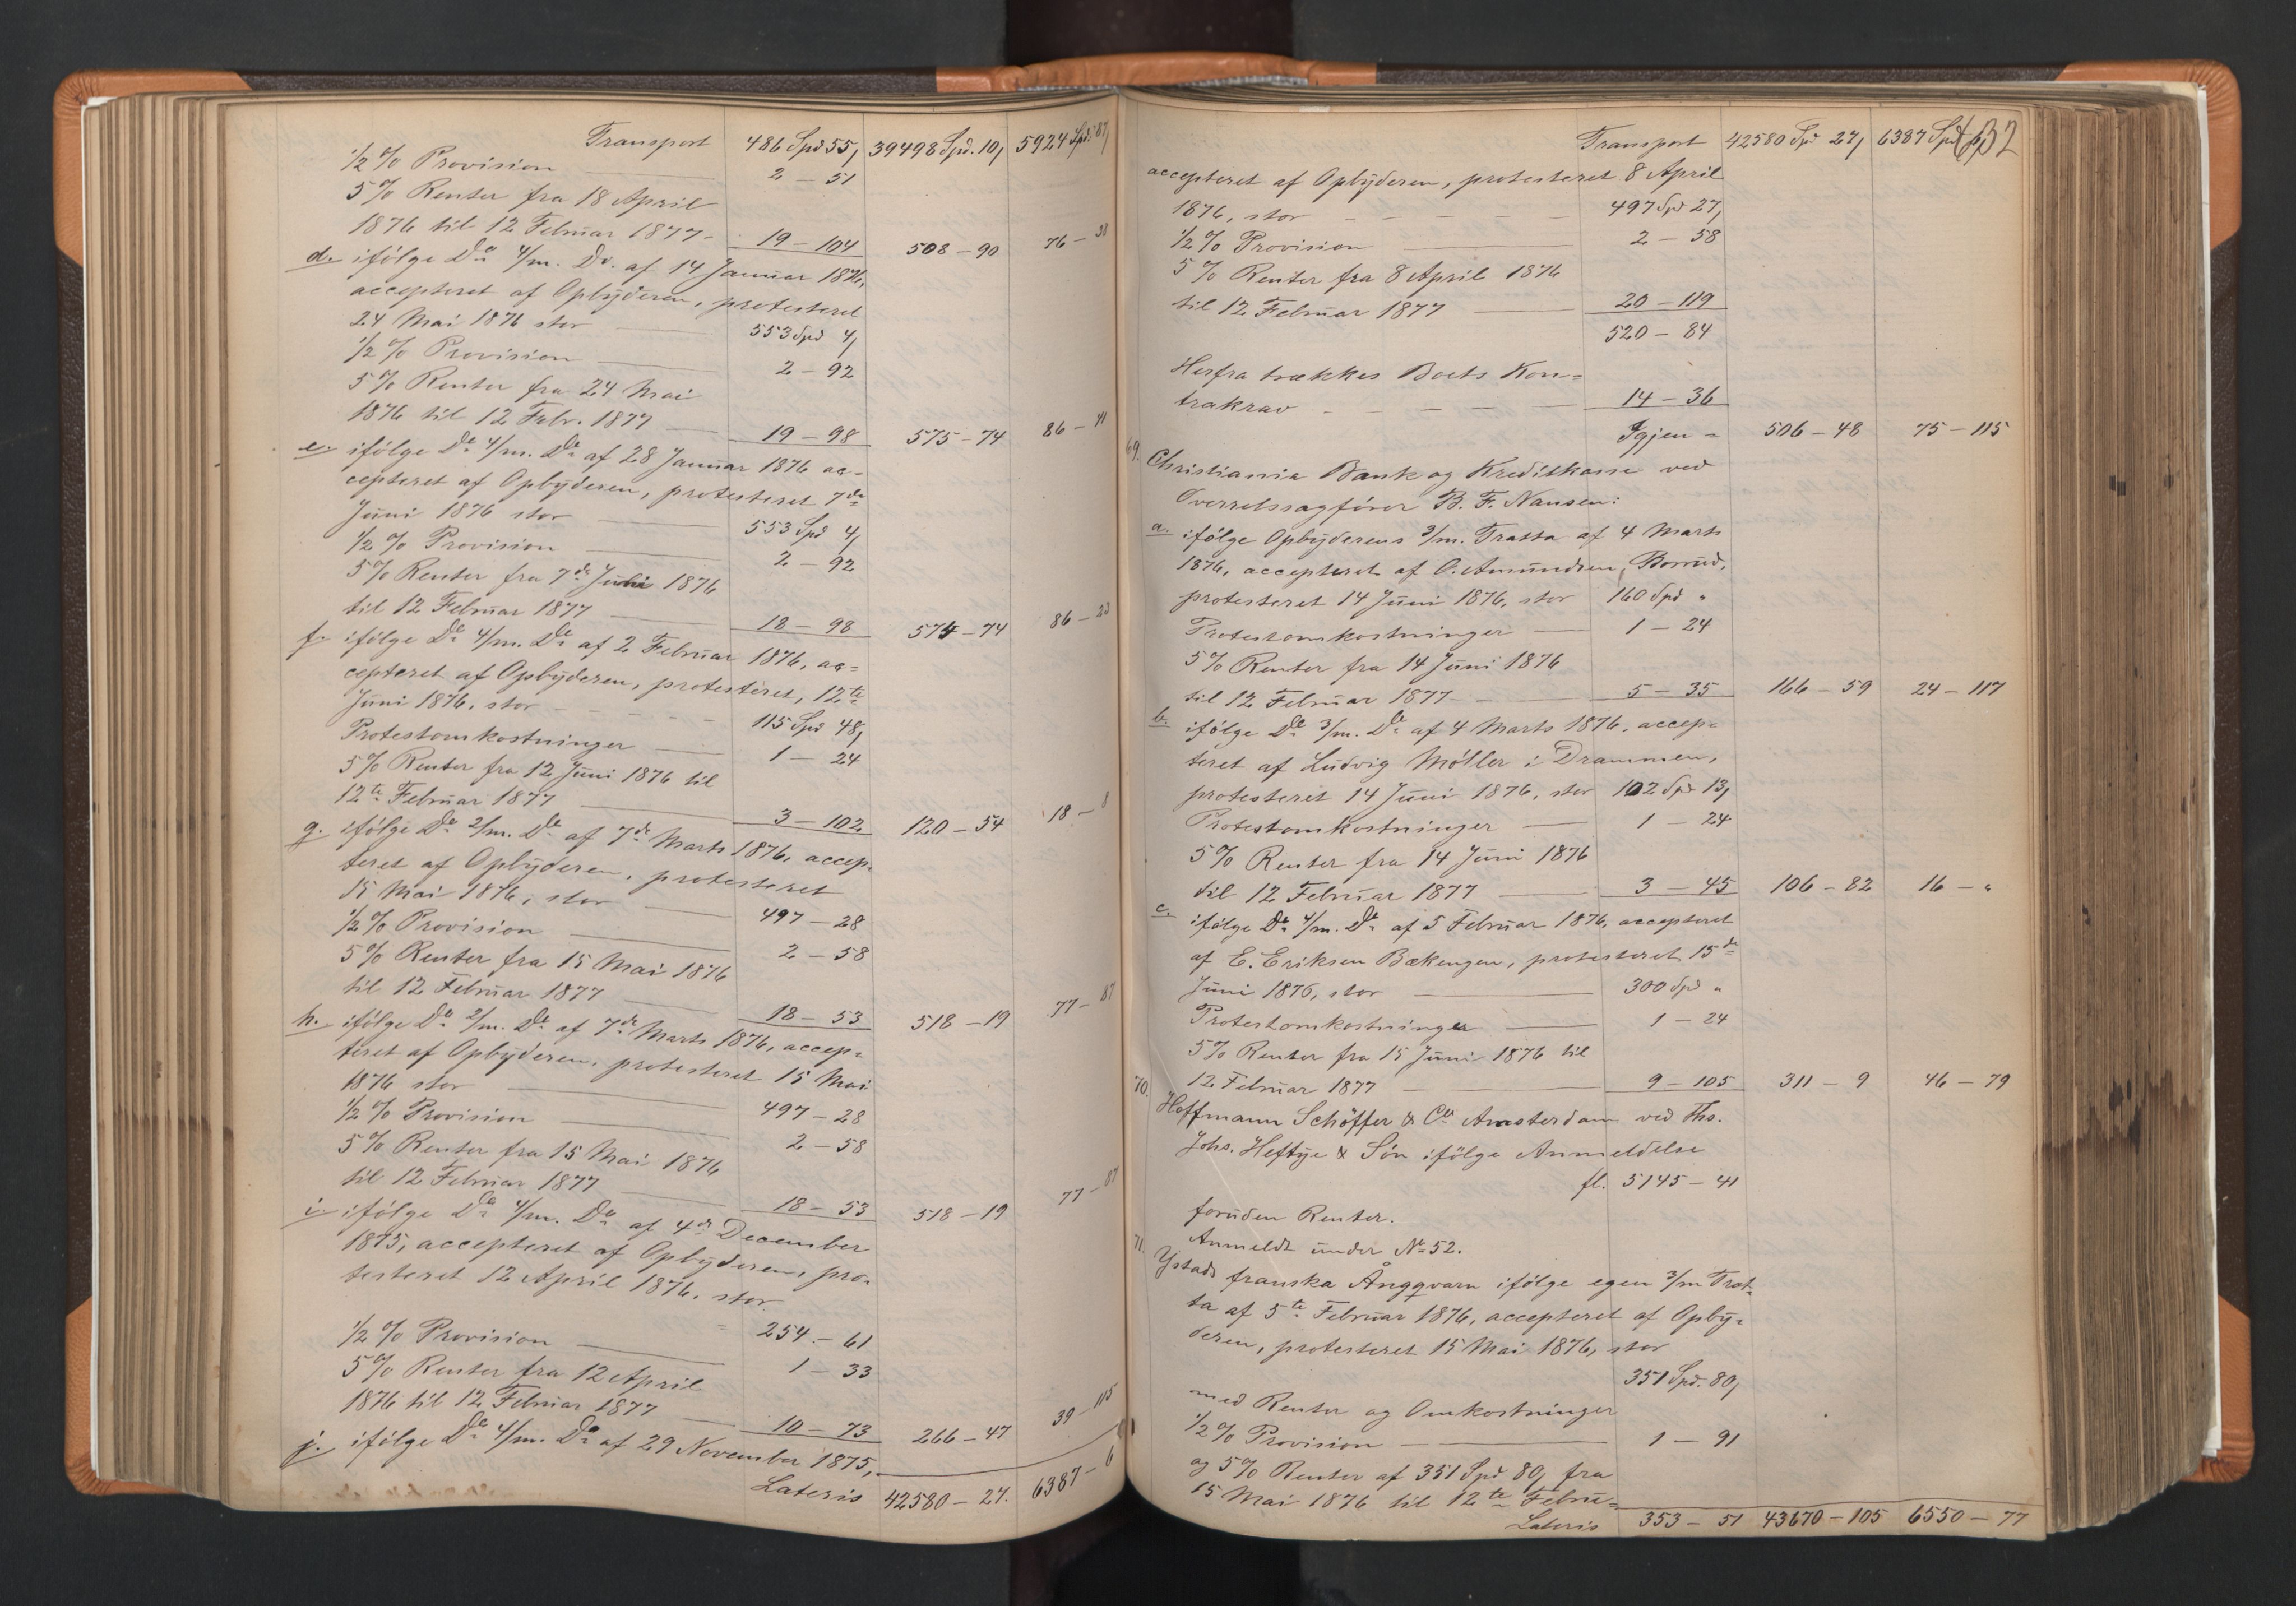 Transport 486 Spd 55, 39498 Spd. 10, 5924 Spd. 87,
1/2 % Provision 2 - 51
5 % Renter fra 18 April
1876 til 12 Februar 1877 - 19 - 104 508 - 90 76 - 38
d. ifölge Do 4/m. Do. af 14 Januar 1876,
accepteret af Opbyderen, protesteret
24 Mai 1876 stor 553 Spd 4,
1/2 % Provision 2 - 92
5 % Renter fra 24 Mai
1876 til 12 Febr. 1877 19 - 98 575 - 74 86 - 41
e. ifölge Do 4/m. Do af 28 Januar 1876 ac=
cepteret af Opbyderen, protesteret 7de
Juni 1876 stor 553 Spd 4,
1/2 % Provision 2 - 92
5 % Renter fra 7de Juni 1876
til 12 Februar 1877 18 - 98 574 - 74 86 - 23
f. ifölge Do 4/m. Do af 2 Februar 1876, ac=
cepteret af Opbyderen, protesteret, 12te
Juni 1876, stor 115 Spd 48,
Protestomkostninger 1 - 24
5 % Renter fra 12 Juni 1876 til
12te Februar 1877 3 - 102 120 - 54 18 - 8
g. ifölge Do 2/m. Do af 7de Marts 1876, accep=
teret af Opbyderen, protesteret
15 Mai 1876, stor 497 - 28
1/2 % Provision 2 - 58
5 % Renter fra 15 Mai 1876
til 12 Februar 1877 18 - 53 518 - 19 77 - 87
h. ifölge Do 2/m. Do af 7de Marts 1876, accep=
teret af Opbyderen, protesteret 15 Mai
1876 stor 497 - 28
1/2 % Provision 2 - 58
5 % Renter fra 15 Mai 1876
til 12 Februar 1877 18 - 53 518 - 19 77 - 87
i. ifölge Do 4/m. Do af 4de December
1875, accepteret af Opbyderen, pro=
testeret 12 April 1876, stor
254 - 61
1/2 % Provision 1 - 33
5 % Renter fra 12 April
1876 til 12 Februar 1877 10 - 73 266 - 47 39 - 115
j. ifölge Do 4/m. Do af 29 November 1875,
Lateris 42580 - 27. 6387 - 6
Transport 42580 Spd 27, 6387 Spd 6, 632
accepteret af Opbyderen, protesteret 8 April
1876, stor 497 Spd 27,
1/2 % Provision 2 - 58
5 % Renter fra 8 April 1876
til 12 Februar 1877 20 - 119
520 - 84
Herfra trækkes Boets Kon=
trakrav 14 - 36
Igjen = 506 - 48 75 - 115
69. Christiania Bank og Kreditkasse ved
Overretssagfører B. F. Nansen:
a. ifölge Opbyderens 3/m. Tratta af 4 Marts
1876, accepteret af O. Amundsen, Borrud,
protesteret 14 Juni 1876, stor 160 Spd "
Protestomkostninger 1 - 24
5 % Renter fra 14 Juni 1876
til 12 Februar 1877 5 - 35 166 - 59 24 - 117
b. ifölge Do 3/m. Do af 4 Marts 1876, accep=
teret af Ludvig Møller i Drammen,
protesteret 14 Juni 1876, stor 102 Spd 13,
Protestomkostninger 1 - 24
5 % Renter fra 14 Juni 1876
til 12 Februar 1877 3 - 45 106 - 82 16 - "
c. ifölge Do 4/m. Do af 5 Februar 1876, accepteret
af E. Eriksen Bækengen, protesteret 15de
Juni 1876, stor 300 Spd "
Protestomkostninger 1 - 24
5 % Renter fra 15 Juni 1876 til
12 Februar 1877 9 - 105 311 - 9 46 - 79
70. Hoffmann Schöffer & Co Amsterdam ved Ths.
Johs. Heftye & Søn ifölge Anmeldelse
fl. 5145 - 41
foruden Renter.
Anmeldt under No 52.
71. Ystads franska Ångqvarn ifölge egen 3/m Trat=
ta af 5te Februar 1876, accepteret af Opby=
deren, protesteret 15 Mai 1876, stor
351 Spd. 80,
med Renter og Omkostninger
1/2 % Provision 1 - 91
og 5 % Renter af 351 Spd 80, fra
15 Mai 1876 til 12te Febru=
Lateris 353 - 51 43670 - 105 6550 - 77